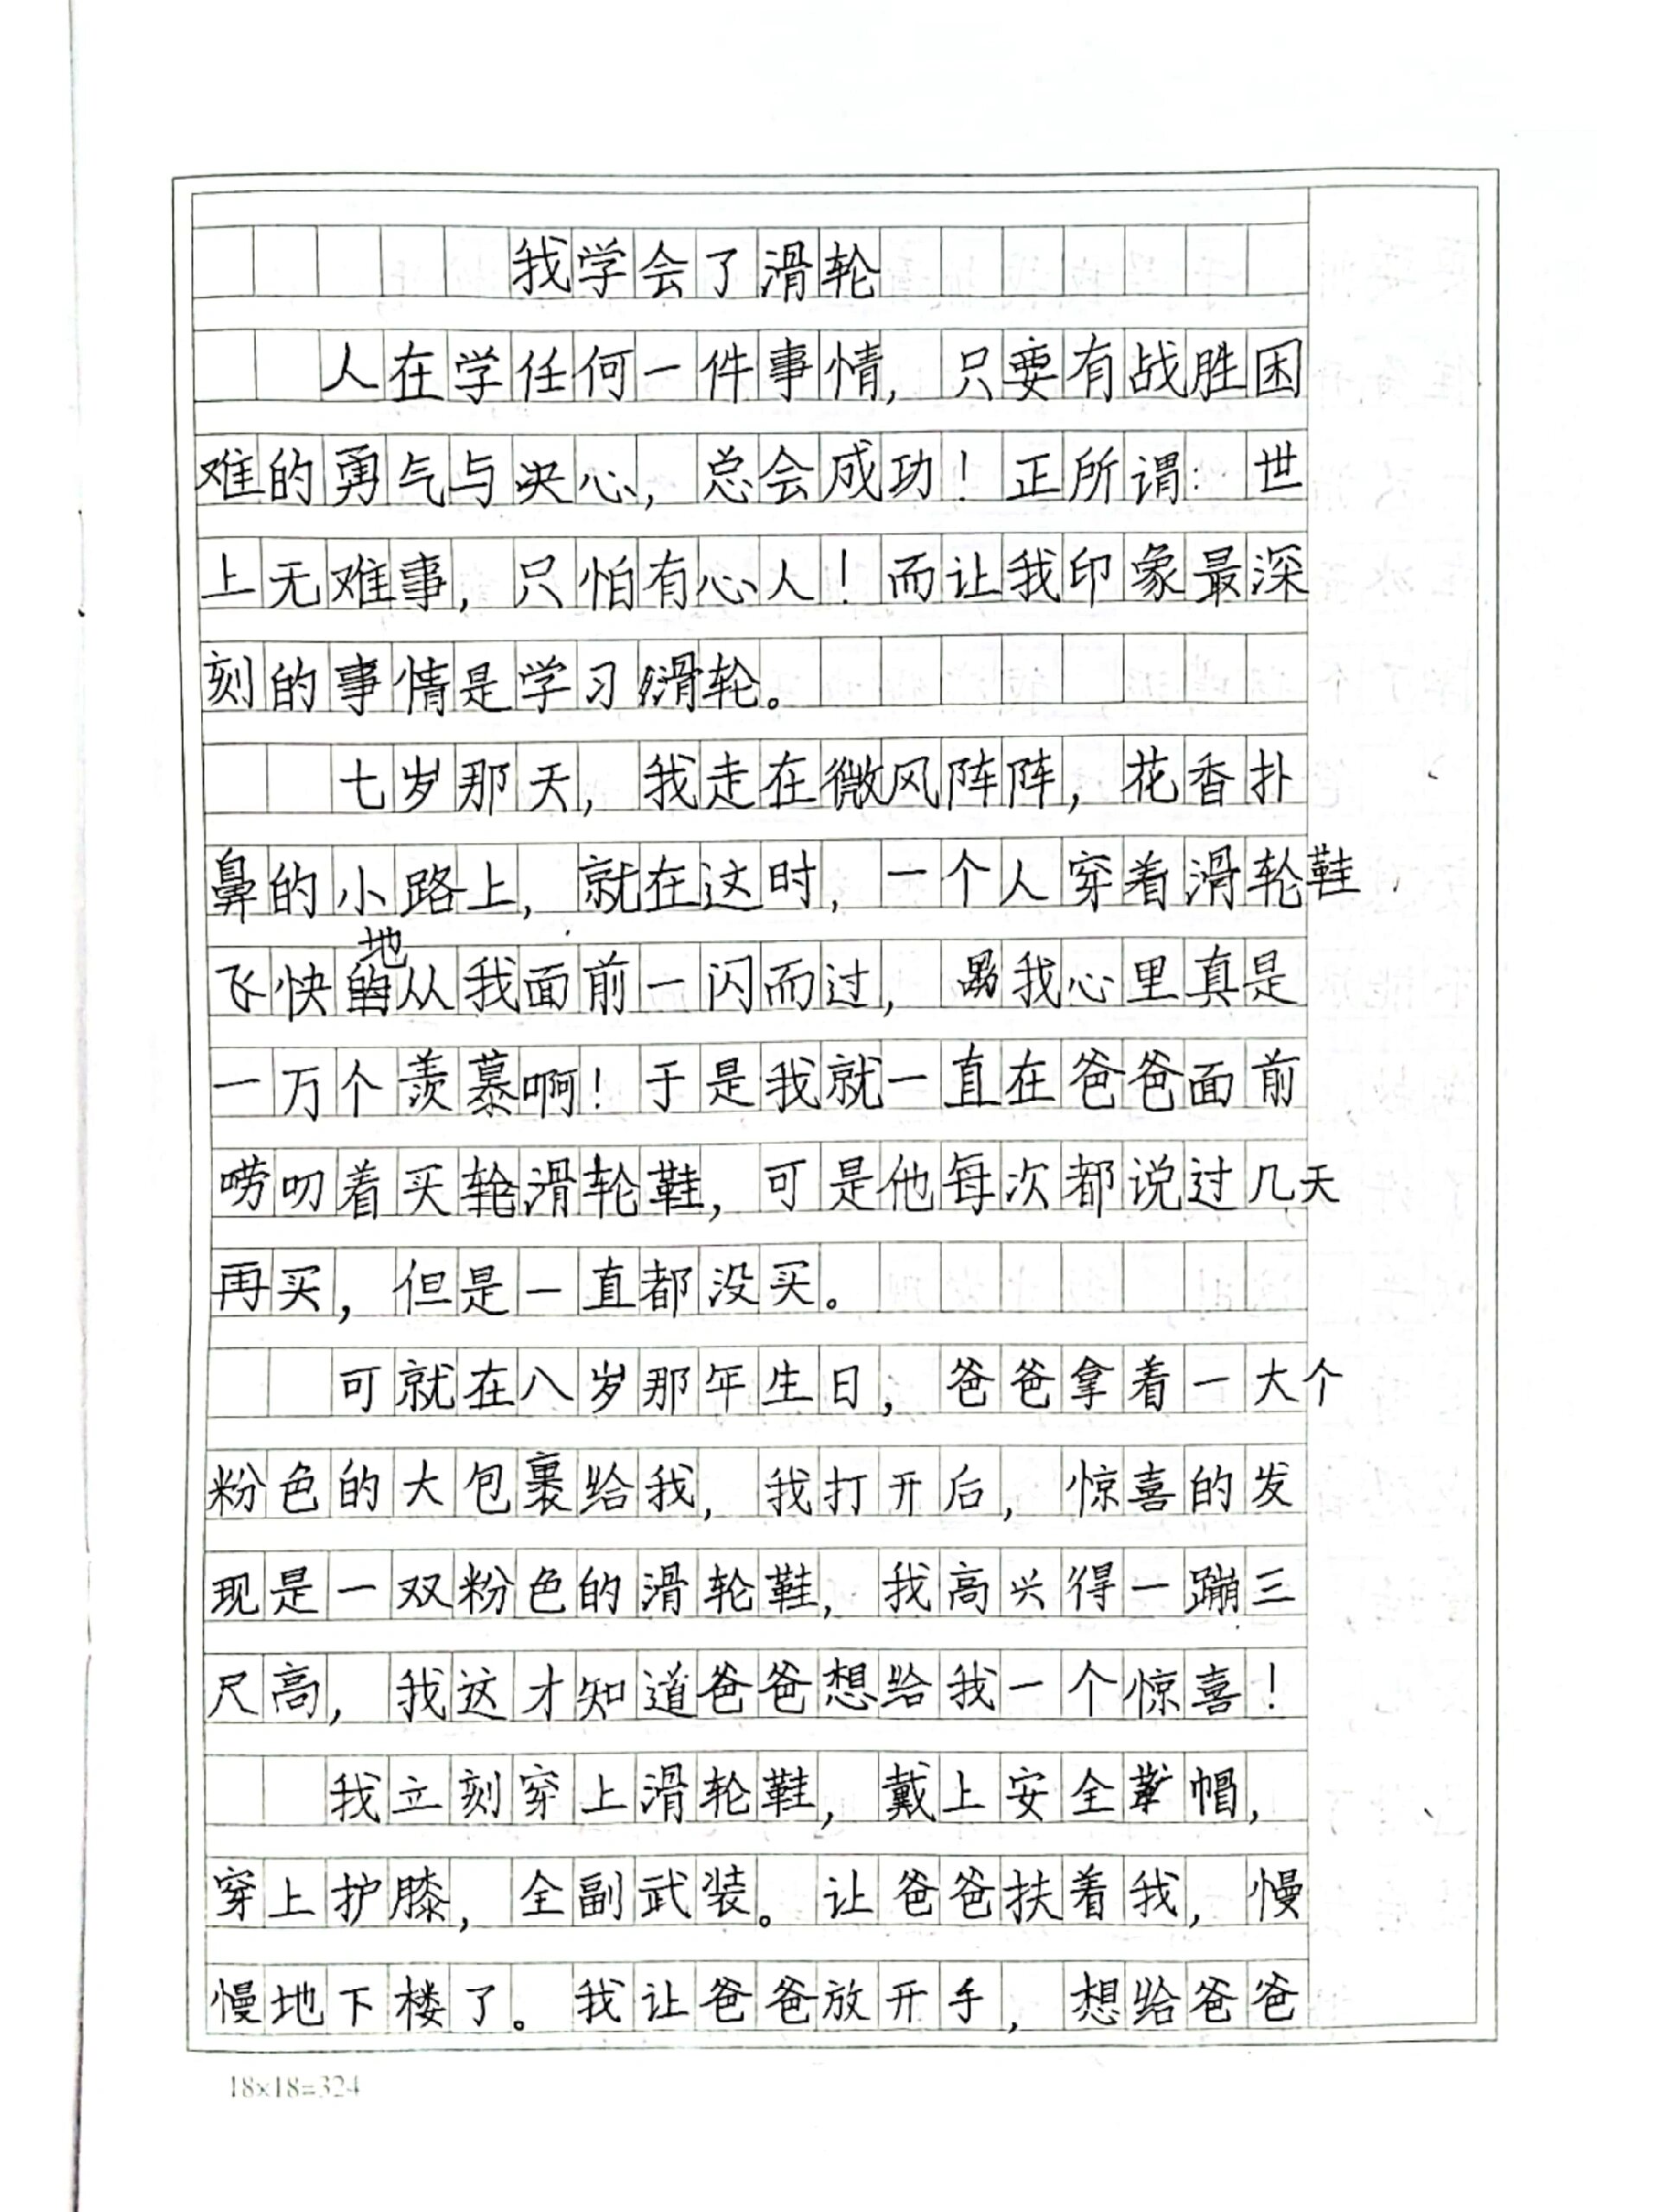 我学会了滑轮
人在学任何一件事情，只要有战胜困
难的勇气与决心，总会成功！正所谓：世
上无难事，只怕有心人！而让我印象最深
刻的事情是学习滑轮。
七岁那天，我走在微风阵阵，花香扑
鼻的小路上，就在这时，一个人穿着滑轮鞋
飞快地从我面前一闪而过，我心里真是
一万个羡慕啊！于是我就一直在爸爸面前
唠叨着买轮滑轮鞋，可是他每次都说过几天
再买，但是一直都没买。
可就在八岁那年生日，爸爸拿着一大个
粉色的大包裹给我，我打开后，惊喜的发
现是一双粉色的滑轮鞋，我高兴得一蹦三
尺高，我这才知道爸爸想给我一个惊喜！
我立刻穿上滑轮鞋，戴上安全帽，
穿上护膝，全副武装。让爸爸扶着我，慢
慢地下楼了。我让爸爸放开手，想给爸爸
18×18=324